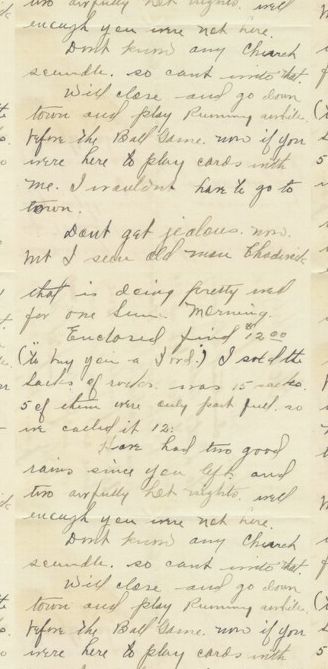 two awfully hot nights. well
enough you were not here.
Dont know any Church
scandle. so cant write that.
Will close and go down
town and play Rummy awhile
before the Ball Game. now if you
were here to play cards with
me. I wouldnt have to go to
town.
Dont get jealous. now.
but I seen old man Chadwick
that is doing pretty well
for one Sun. Morning.
Enclosed find $12.00
(to buy you a Ford.) I sold the
sacks of rocks. was 15 sacks.
5 of them were only part full. so
we called it 12.
Have had two good
rains since you left. and
two awfully hot nights. well
enough you were not here.
Dont know any Church
scandle. so cant write that.
Will close and go down
town and play Rummy awhile
before the Ball Game. now if you
were here to play cards with